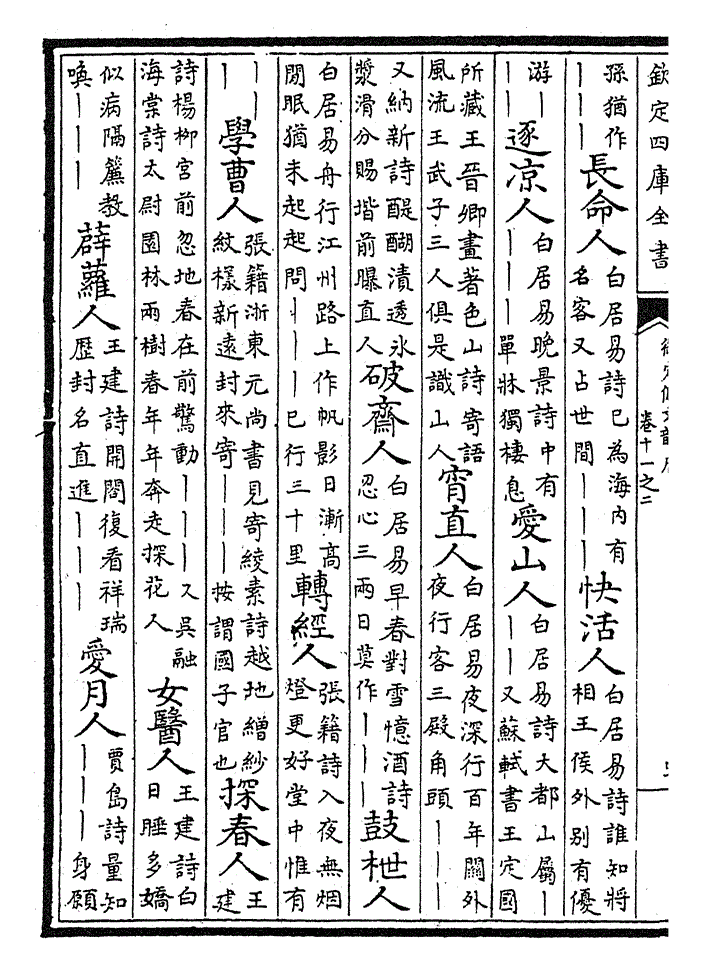 欽定四庫全書
卷十一之二
孫猶作
｜｜｜
長命人
白居易詩已為海内有
名客又占世間｜｜｜
快活人
白居易詩誰知將
相王侯外别有優
游｜
｜｜
逐凉人
白居易晚景詩中有
｜｜｜單牀獨棲息
愛山人
白居易詩大都山屬｜
｜｜又蘇軾書王定國
所藏王晉卿畫著色山詩寄語
風流王武子三人俱是識山人
宵直人
白居易夜深行百年關外
夜行客三殿角頭｜｜｜
又納新詩醍醐漬透氷
漿滑分賜堦前曝直人
破齋人
白居易早春對雪憶酒詩
忍心三兩日莫作｜｜｜
鼓枻人
白居易舟行江州路上作帆影日漸高
閒眠猶未起起問｜｜｜已行三十里
轉經人
張籍詩入夜無烟
燈更好堂中惟有
｜｜
｜
學曹人
張籍浙東元尚書見寄綾素詩越地繒紗
紋樣新遠封來寄｜｜｜按謂國子官也
探春人
王
建
詩楊柳宮前忽地春在前驚動｜｜｜又吳融
海棠詩太尉園林兩樹春年年奔走探花人
女醫人
王建詩白
日睡多嬌
似病隔簾教
喚｜｜｜
薜蘿人
王建詩開閤復看祥瑞
歴封名直進｜｜｜
愛月人
賈島詩量知
｜｜｜身願